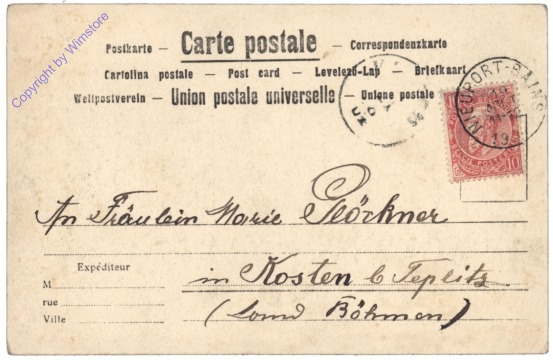 Copyright by Wimstore
Postkarte — Carte postale — Correspondenzkarte
Cartolina postale — Post card — Levelező-Lap — Briefkaart
Weltpostverein — Union postale universelle — Unione postale
NIEUPORT-BAINS
19
BELGIE POSTERIJEN
10
An Fräulein Marie Plöckner
in Kosten b Teplitz
(Land Böhmen)
Expéditeur
M
rue
Ville